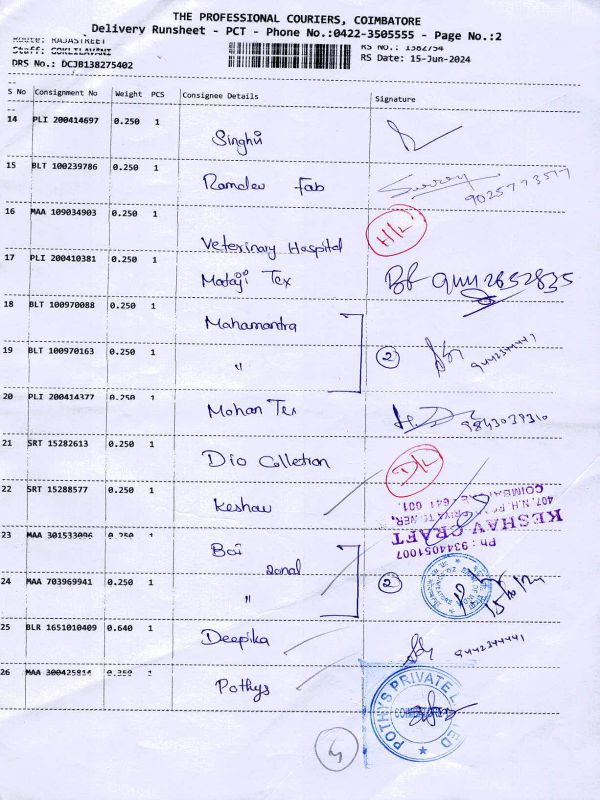 THE PROFESSIONAL COURIERS, COIMBATORE
Delivery Runsheet - PCT - Phone No.:0422-3505555 - Page No.:2
Route: RAJASTREET
Staff: GOKILAVANI
RS No.: 1382754
DRS No.: DCJB138275402
RS Date: 15-Jun-2024
S No Consignment No Weight PCS Consignee Details Signature
14 PLI 200414697 0.250 1 Singhvi
15 BLT 100239786 0.250 1 Ramdev Fab
16 MAA 109034903 0.250 1 Veterinary Hospital
17 PLI 200410381 0.250 1 Mataji Tex
18 BLT 100970088 0.250 1 Mahamantra
19 BLT 100970163 0.250 1 " 2
20 PLI 200414377 0.250 1 Mohan Tex 9843039310
21 SRT 15282613 0.250 1 Dio Colletion D/L
22 SRT 15288577 0.250 1 Keshav
KESHAV CRAFT
Ph : 9344051007
23 MAA 301533096 0.250 1 Boi zonal
24 MAA 703969941 0.250 1 " 2
25 BLR 1651010409 0.640 1 Deepika 9442344441
26 MAA 300425814 0.250 1 Pothys
POTHYS PRIVATE LIMITED
COIMBATORE